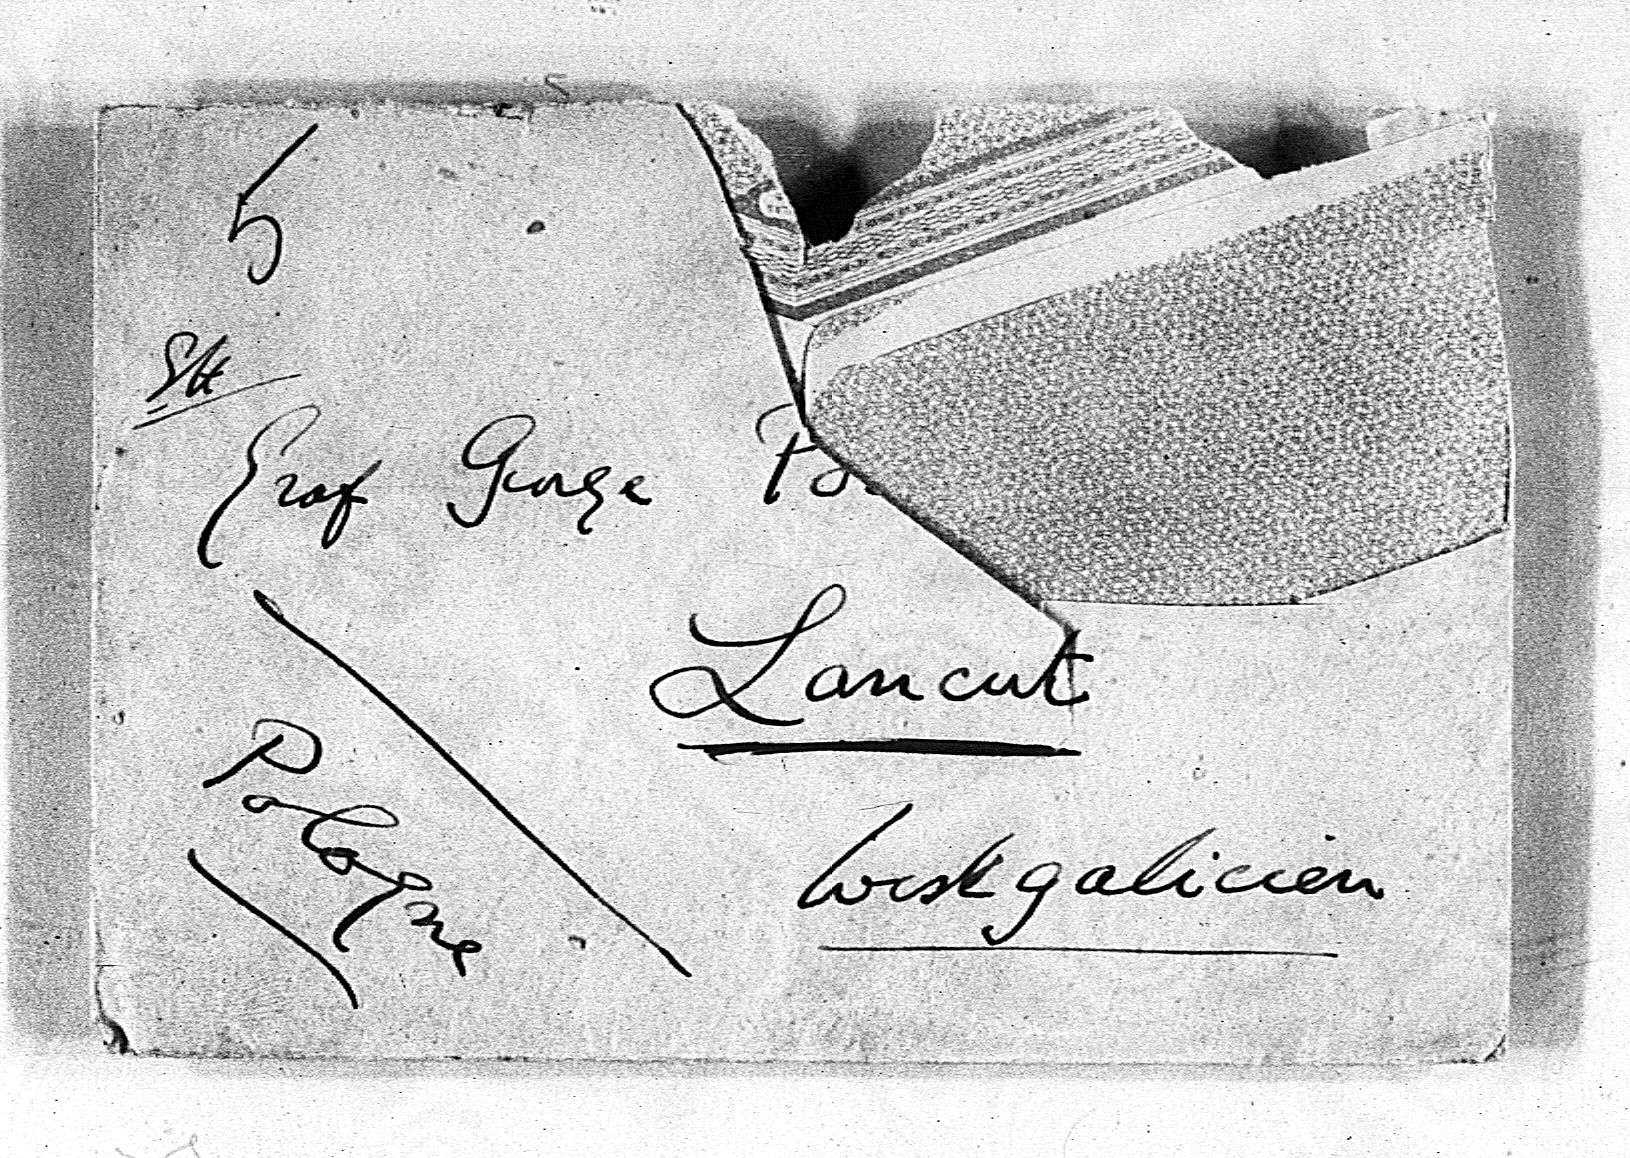 5
Graf George Po
Lancut
Westgalicien
Pologne